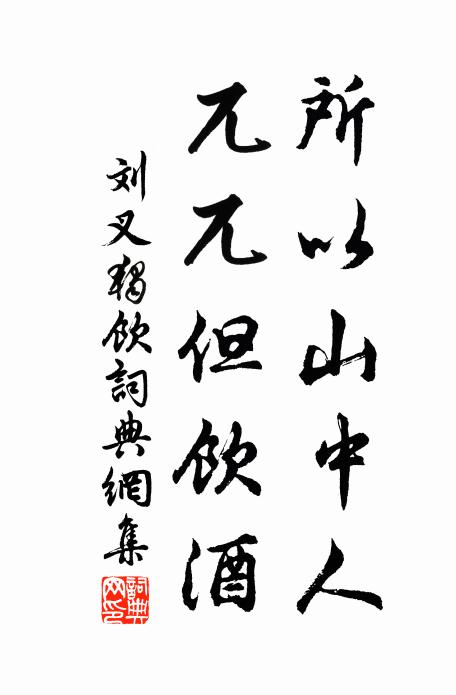 所以山中人
兀兀但饮酒
刘叉獨饮詞典網集
詞典网印